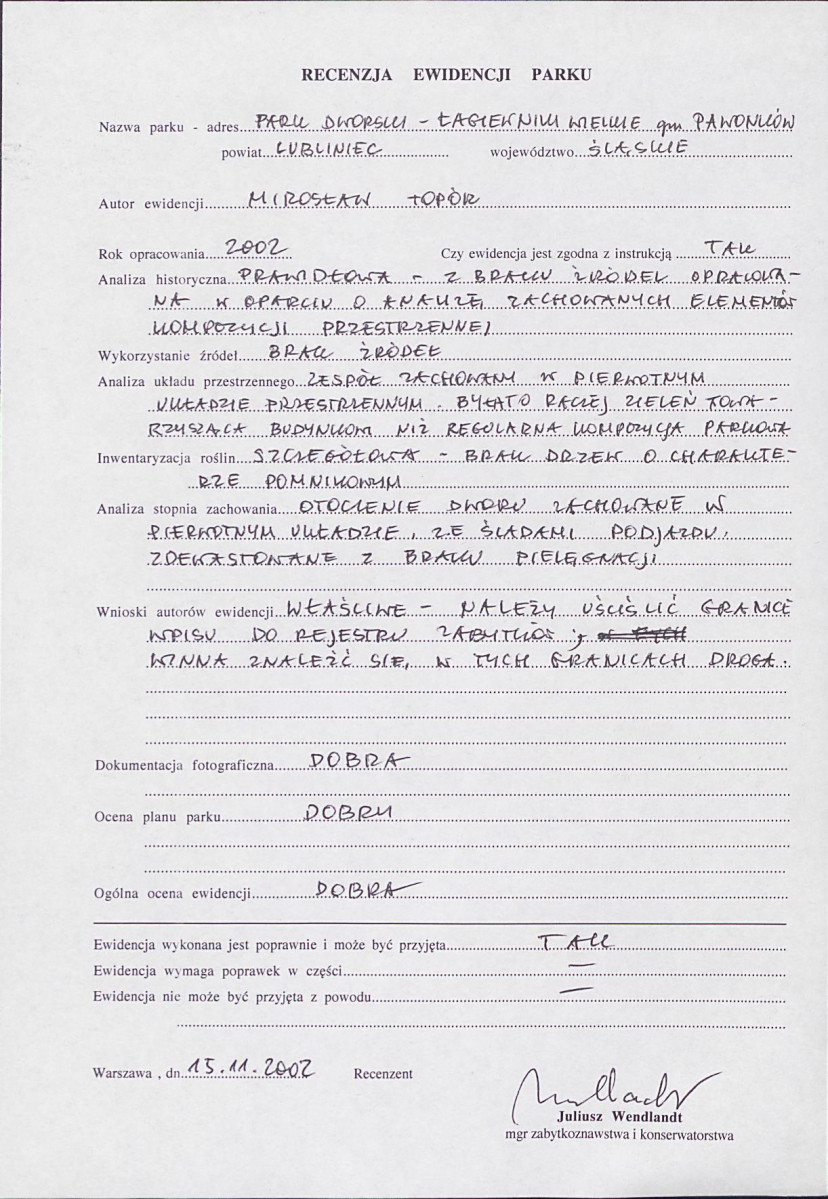 RECENZJA EWIDENCJI PARKU
Nazwa parku - adres PARK DWORSKI - ŁAGIEWNIKI WIELKIE gm PAWONKÓW
powiat LUBLINIEC województwo ŚLĄSKIE
Autor ewidencji MIROSŁAW TOPÓR
Rok opracowania 2002 Czy ewidencja jest zgodna z instrukcją TAK
Analiza historyczna PRAWIDŁOWA - Z BRAKU ŹRÓDEŁ OPRACOWA-
NA W OPARCIU O ANALIZĘ ZACHOWANYCH ELEMENTÓW
KOMPOZYCJI PRZESTRZENNEJ
Wykorzystanie źródeł BRAK ŹRÓDEŁ
Analiza układu przestrzennego ZESPÓŁ ZACHOWANY W PIERWOTNYM
UKŁADZIE PRZESTRZENNYM. BYŁA TO RACZEJ ZIELEŃ TOWA-
RZYSZĄCA BUDYNKOM NIŻ REGULARNA KOMPOZYCJA PARKOWA
Inwentaryzacja roślin SZCZEGÓŁOWA - BRAK DRZEW O CHARAKTE-
RZE POMNIKOWYM
Analiza stopnia zachowania OTOCZENIE DWORU ZACHOWANE W
PIERWOTNYM UKŁADZIE, ZE ŚLADAMI PODJAZDU.
ZDEWASTOWANE Z BRAKU PIELĘGNACJI
Wnioski autorów ewidencji WŁAŚCIWE - NALEŻY UŚCIŚLIĆ GRANICE
WPISU DO REJESTRU ZABYTKÓW;
WINNA ZNALEŹĆ SIĘ W TYCH GRANICACH DROGA.
Dokumentacja fotograficzna DOBRA
Ocena planu parku DOBRY
Ogólna ocena ewidencji DOBRA
Ewidencja wykonana jest poprawnie i może być przyjęta TAK
Ewidencja wymaga poprawek w części —
Ewidencja nie może być przyjęta z powodu —
Warszawa , dn. 15.11.2002 Recenzent
Juliusz Wendlandt
mgr zabytkoznawstwa i konserwatorstwa